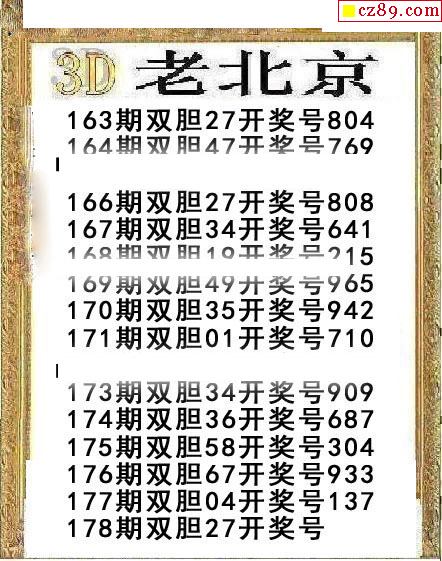 cz89.com
3D 老北京
163期双胆27开奖号804
164期双胆47开奖号769
166期双胆27开奖号808
167期双胆34开奖号641
168期双胆19开奖号215
169期双胆49开奖号965
170期双胆35开奖号942
171期双胆01开奖号710
173期双胆34开奖号909
174期双胆36开奖号687
175期双胆58开奖号304
176期双胆67开奖号933
177期双胆04开奖号137
178期双胆27开奖号